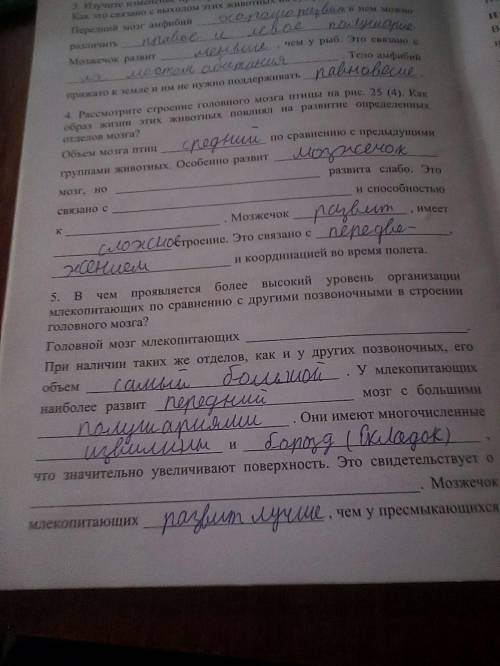 3. Изучите
Как это связано с выходом этих животных на
Передний мозг амфибий хорошо развит в нем можно
различить правое и левое полушарие
Мозжечок развит меньше, чем у рыб. Это связано с
местом обитания. Тело амфибий
прижато к земле и им не нужно поддерживать равновесие.
4. Рассмотрите строение головного мозга птицы на рис. 25 (4). Как
образ жизни этих животных повлиял на развитие определенных
отделов мозга?
Объем мозга птиц средний по сравнению с предыдущими
группами животных. Особенно развит мозжечок
мозг, но развита слабо. Это
связано с и способностью
к . Мозжечок развит, имеет
сложное строение. Это связано с передви-
жением и координацией во время полета.
5. В чем проявляется более высокий уровень организации
млекопитающих по сравнению с другими позвоночными в строении
головного мозга?
Головной мозг млекопитающих .
При наличии таких же отделов, как и у других позвоночных, его
объем самый большой. У млекопитающих
наиболее развит передний мозг с большими
полушариями. Они имеют многочисленные
извилины и борозд (складок),
что значительно увеличивают поверхность. Это свидетельствует о
. Мозжечок
млекопитающих развит лучше, чем у пресмыкающихся